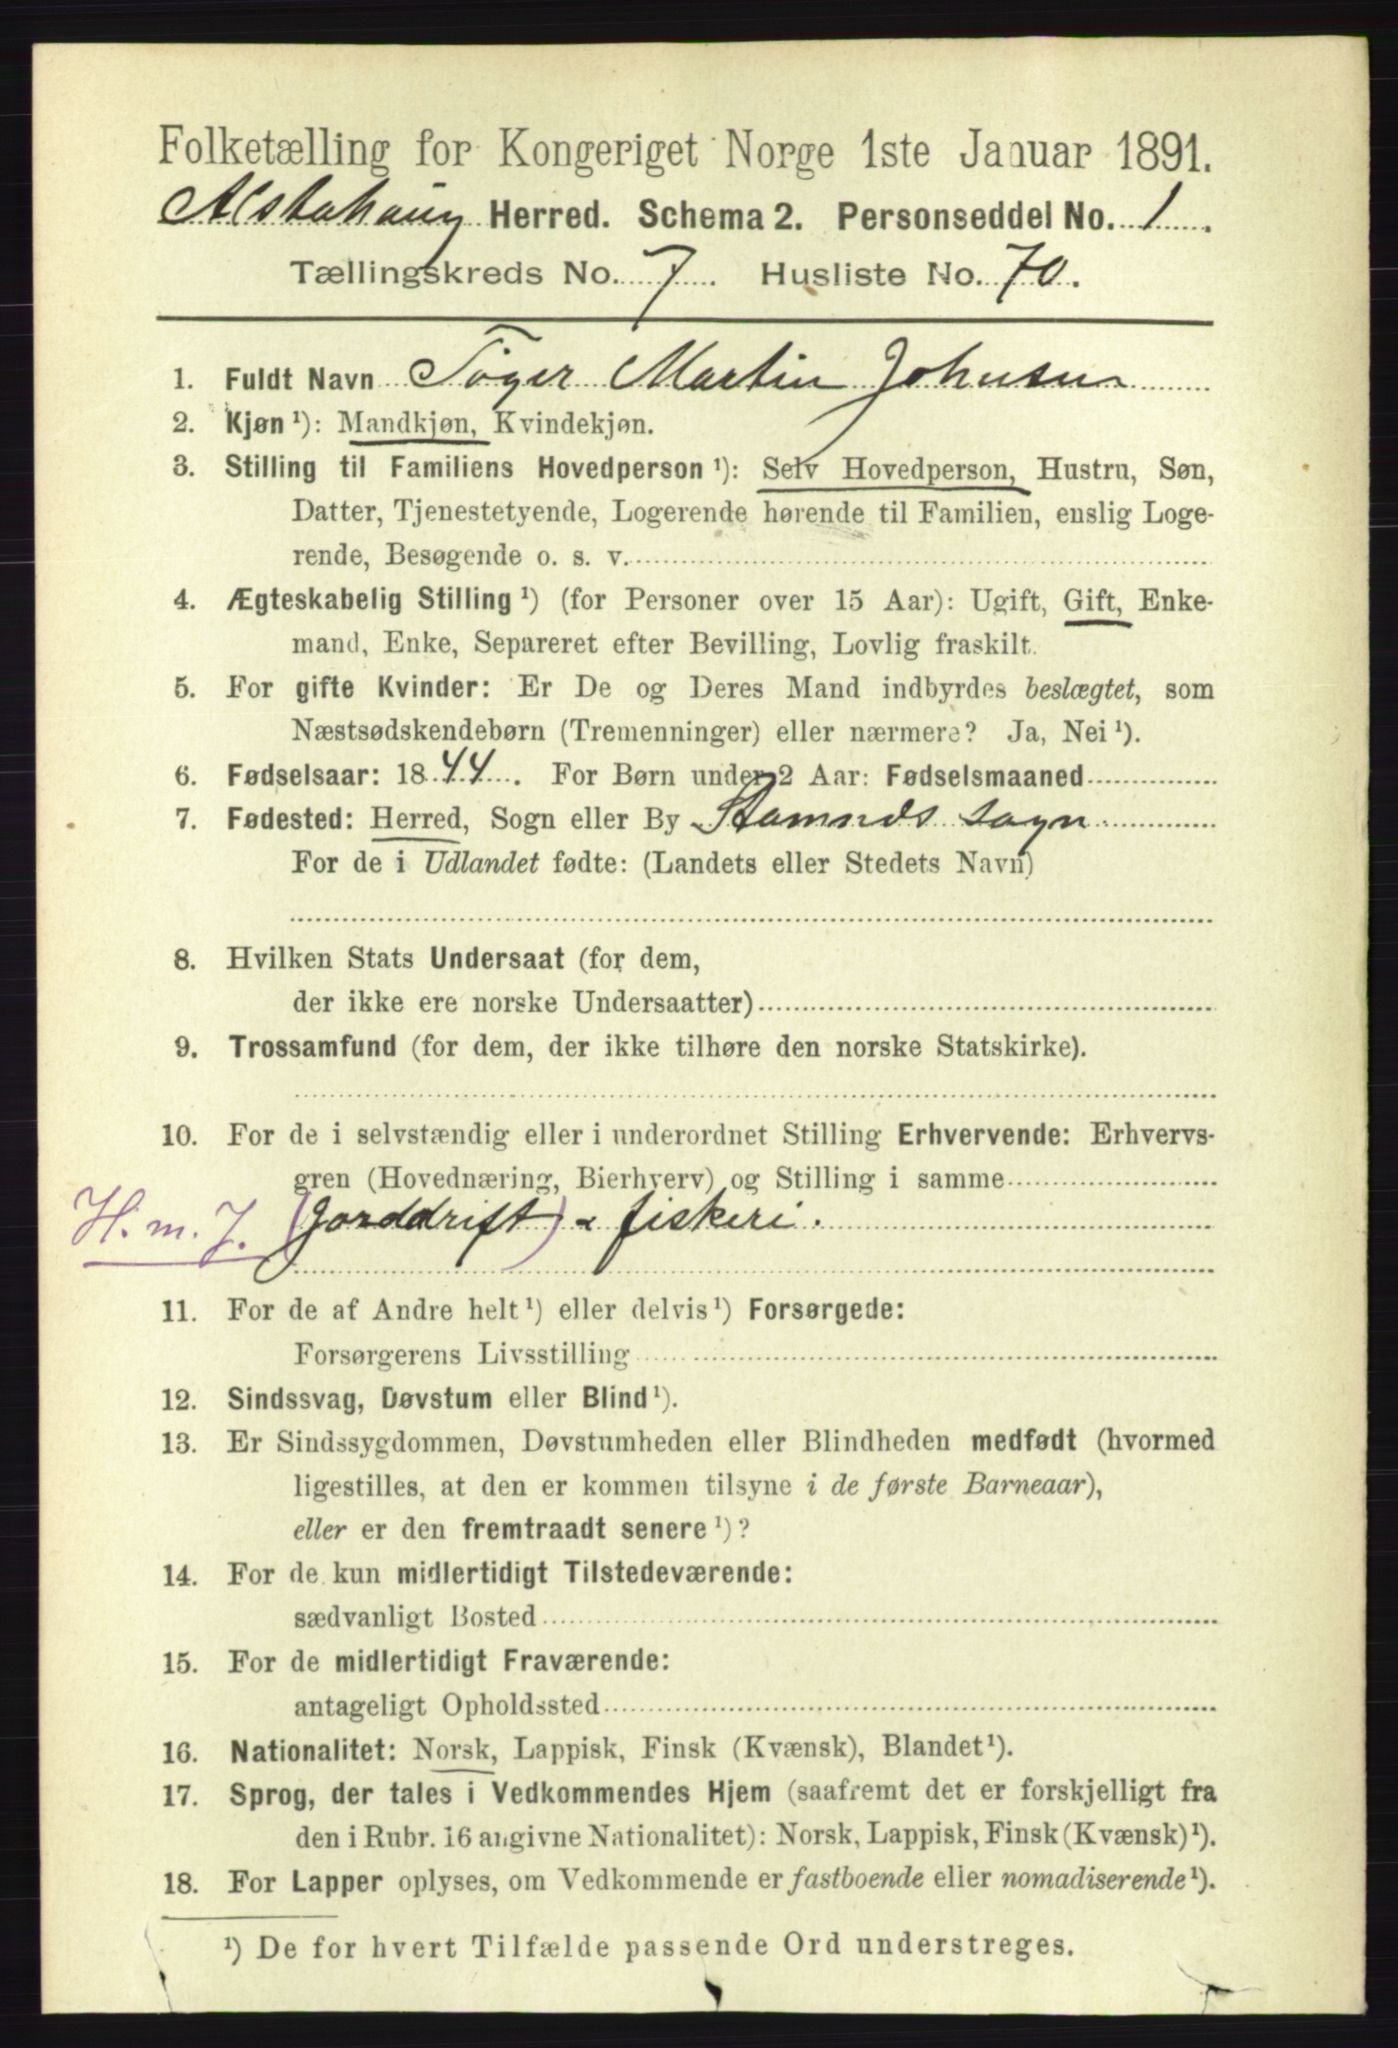 Folketælling for Kongeriget Norge 1ste Januar 1891.
Alstahaug Herred. Schema 2. Personseddel No. 1.
Tællingskreds No. 7. Husliste No. 70.
1. Fuldt Navn Töger Martin Johnsen
2. Kjøn ¹): Mandkjøn, Kvindekjøn.
3. Stilling til Familiens Hovedperson ¹): Selv Hovedperson, Hustru, Søn,
Datter, Tjenestetyende, Logerende hørende til Familien, enslig Loge-
rende, Besøgende o. s. v.
4. Ægteskabelig Stilling ¹) (for Personer over 15 Aar): Ugift, Gift, Enke-
mand, Enke, Separeret efter Bevilling, Lovlig fraskilt.
5. For gifte Kvinder: Er De og Deres Mand indbyrdes beslægtet, som
Næstsødskendebørn (Tremenninger) eller nærmere? Ja, Nei ¹).
6. Fødselsaar: 1844. For Børn under 2 Aar: Fødselsmaaned
7. Fødested: Herred, Sogn eller By Stamnæs sogn
For de i Udlandet fødte: (Landets eller Stedets Navn)
8. Hvilken Stats Undersaat (for dem,
der ikke ere norske Undersaatter)
9. Trossamfund (for dem, der ikke tilhøre den norske Statskirke).
10. For de i selvstændig eller i underordnet Stilling Erhvervende: Erhvervs-
gren (Hovednæring, Bierhverv) og Stilling i samme
H. m. J. (Jorddrift) - fiskeri.
11. For de af Andre helt ¹) eller delvis ¹) Forsørgede:
Forsørgerens Livsstilling
12. Sindssvag, Døvstum eller Blind ¹).
13. Er Sindssygdommen, Døvstumheden eller Blindheden medfødt (hvormed
ligestilles, at den er kommen tilsyne i de første Barneaar),
eller er den fremtraadt senere ¹)?
14. For de kun midlertidigt Tilstedeværende:
sædvanligt Bosted
15. For de midlertidigt Fraværende:
antageligt Opholdssted
16. Nationalitet: Norsk, Lappisk, Finsk (Kvænsk), Blandet ¹).
17. Sprog, der tales i Vedkommendes Hjem (saafremt det er forskjelligt fra
den i Rubr. 16 angivne Nationalitet): Norsk, Lappisk, Finsk (Kvænsk) ¹).
18. For Lapper oplyses, om Vedkommende er fastboende eller nomadiserende ¹).
¹) De for hvert Tilfælde passende Ord understreges.